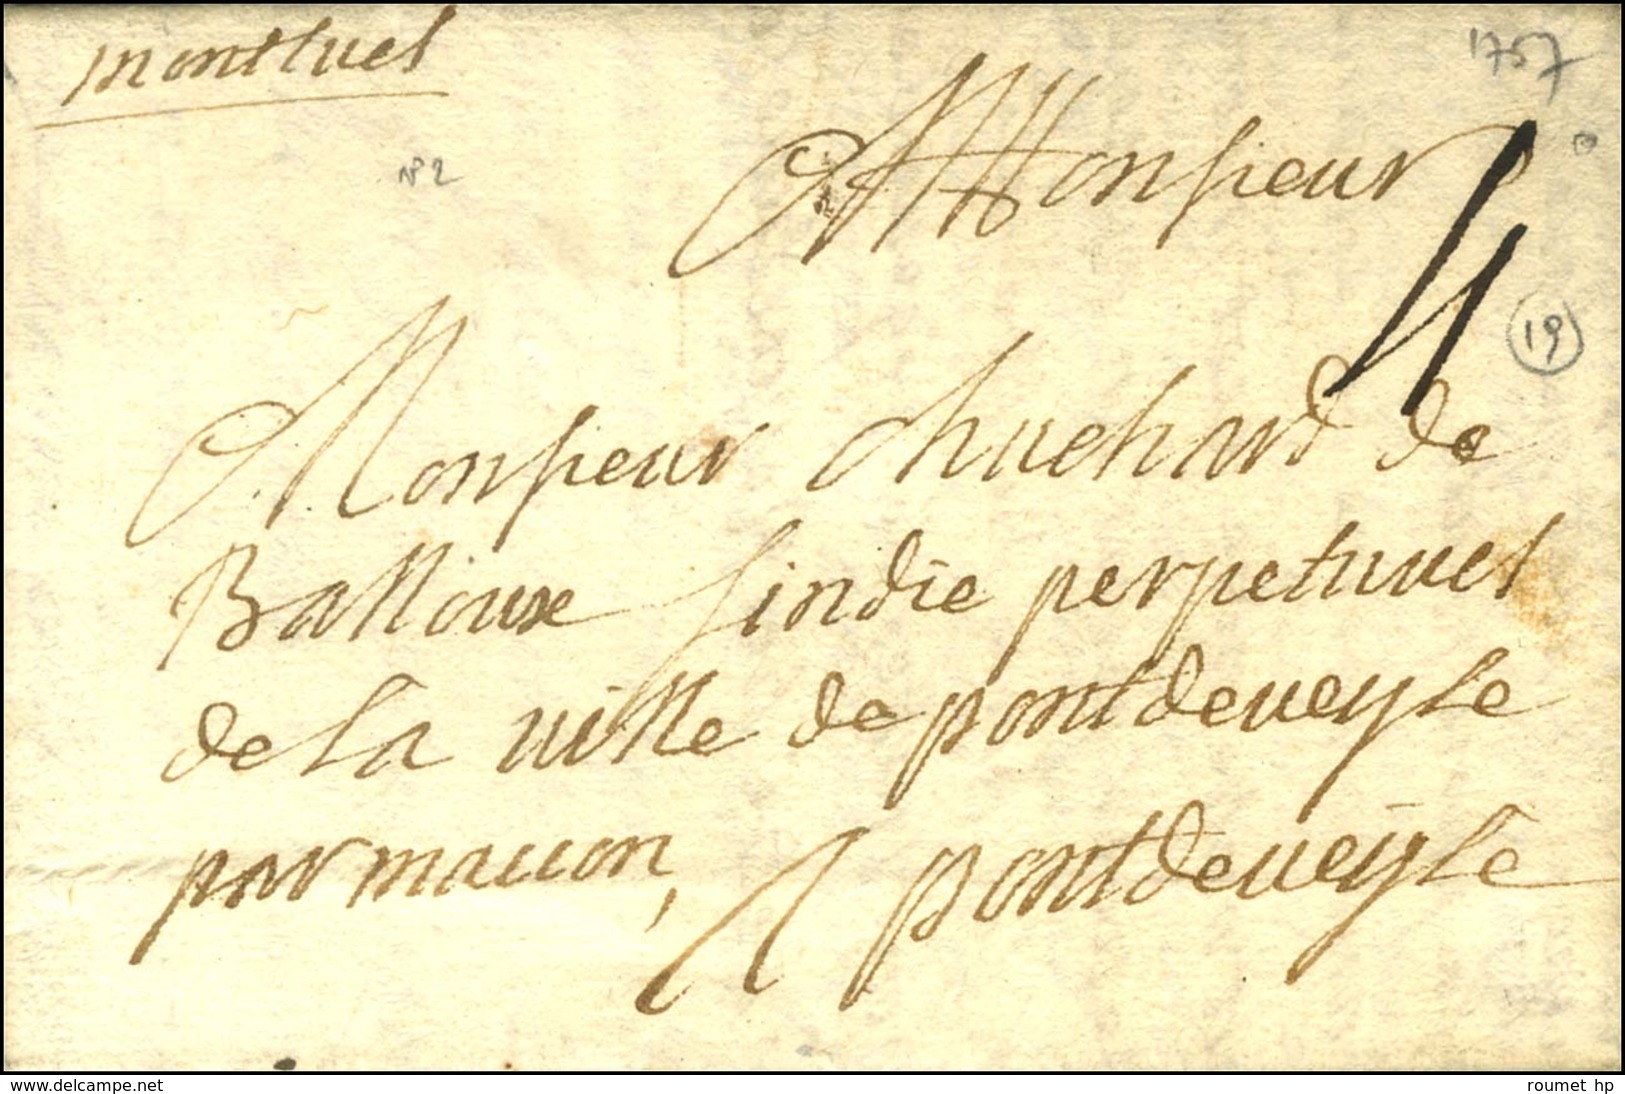 montluel
1757
N° 2
A Monsieur
4
19
Monsieur Chuchard de
Ballioux sindic perpetuuel
de la ville de pontdeveyle
par maccon, A pontdeveyle
www.delcampe.net
roumet hp